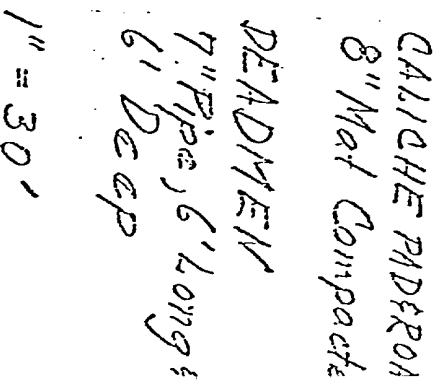 CALICHE PAD&ROA
8" Mat Compacte
DEADMEN
7" Pipe, 6' Long &
6' Deep
1" = 30'